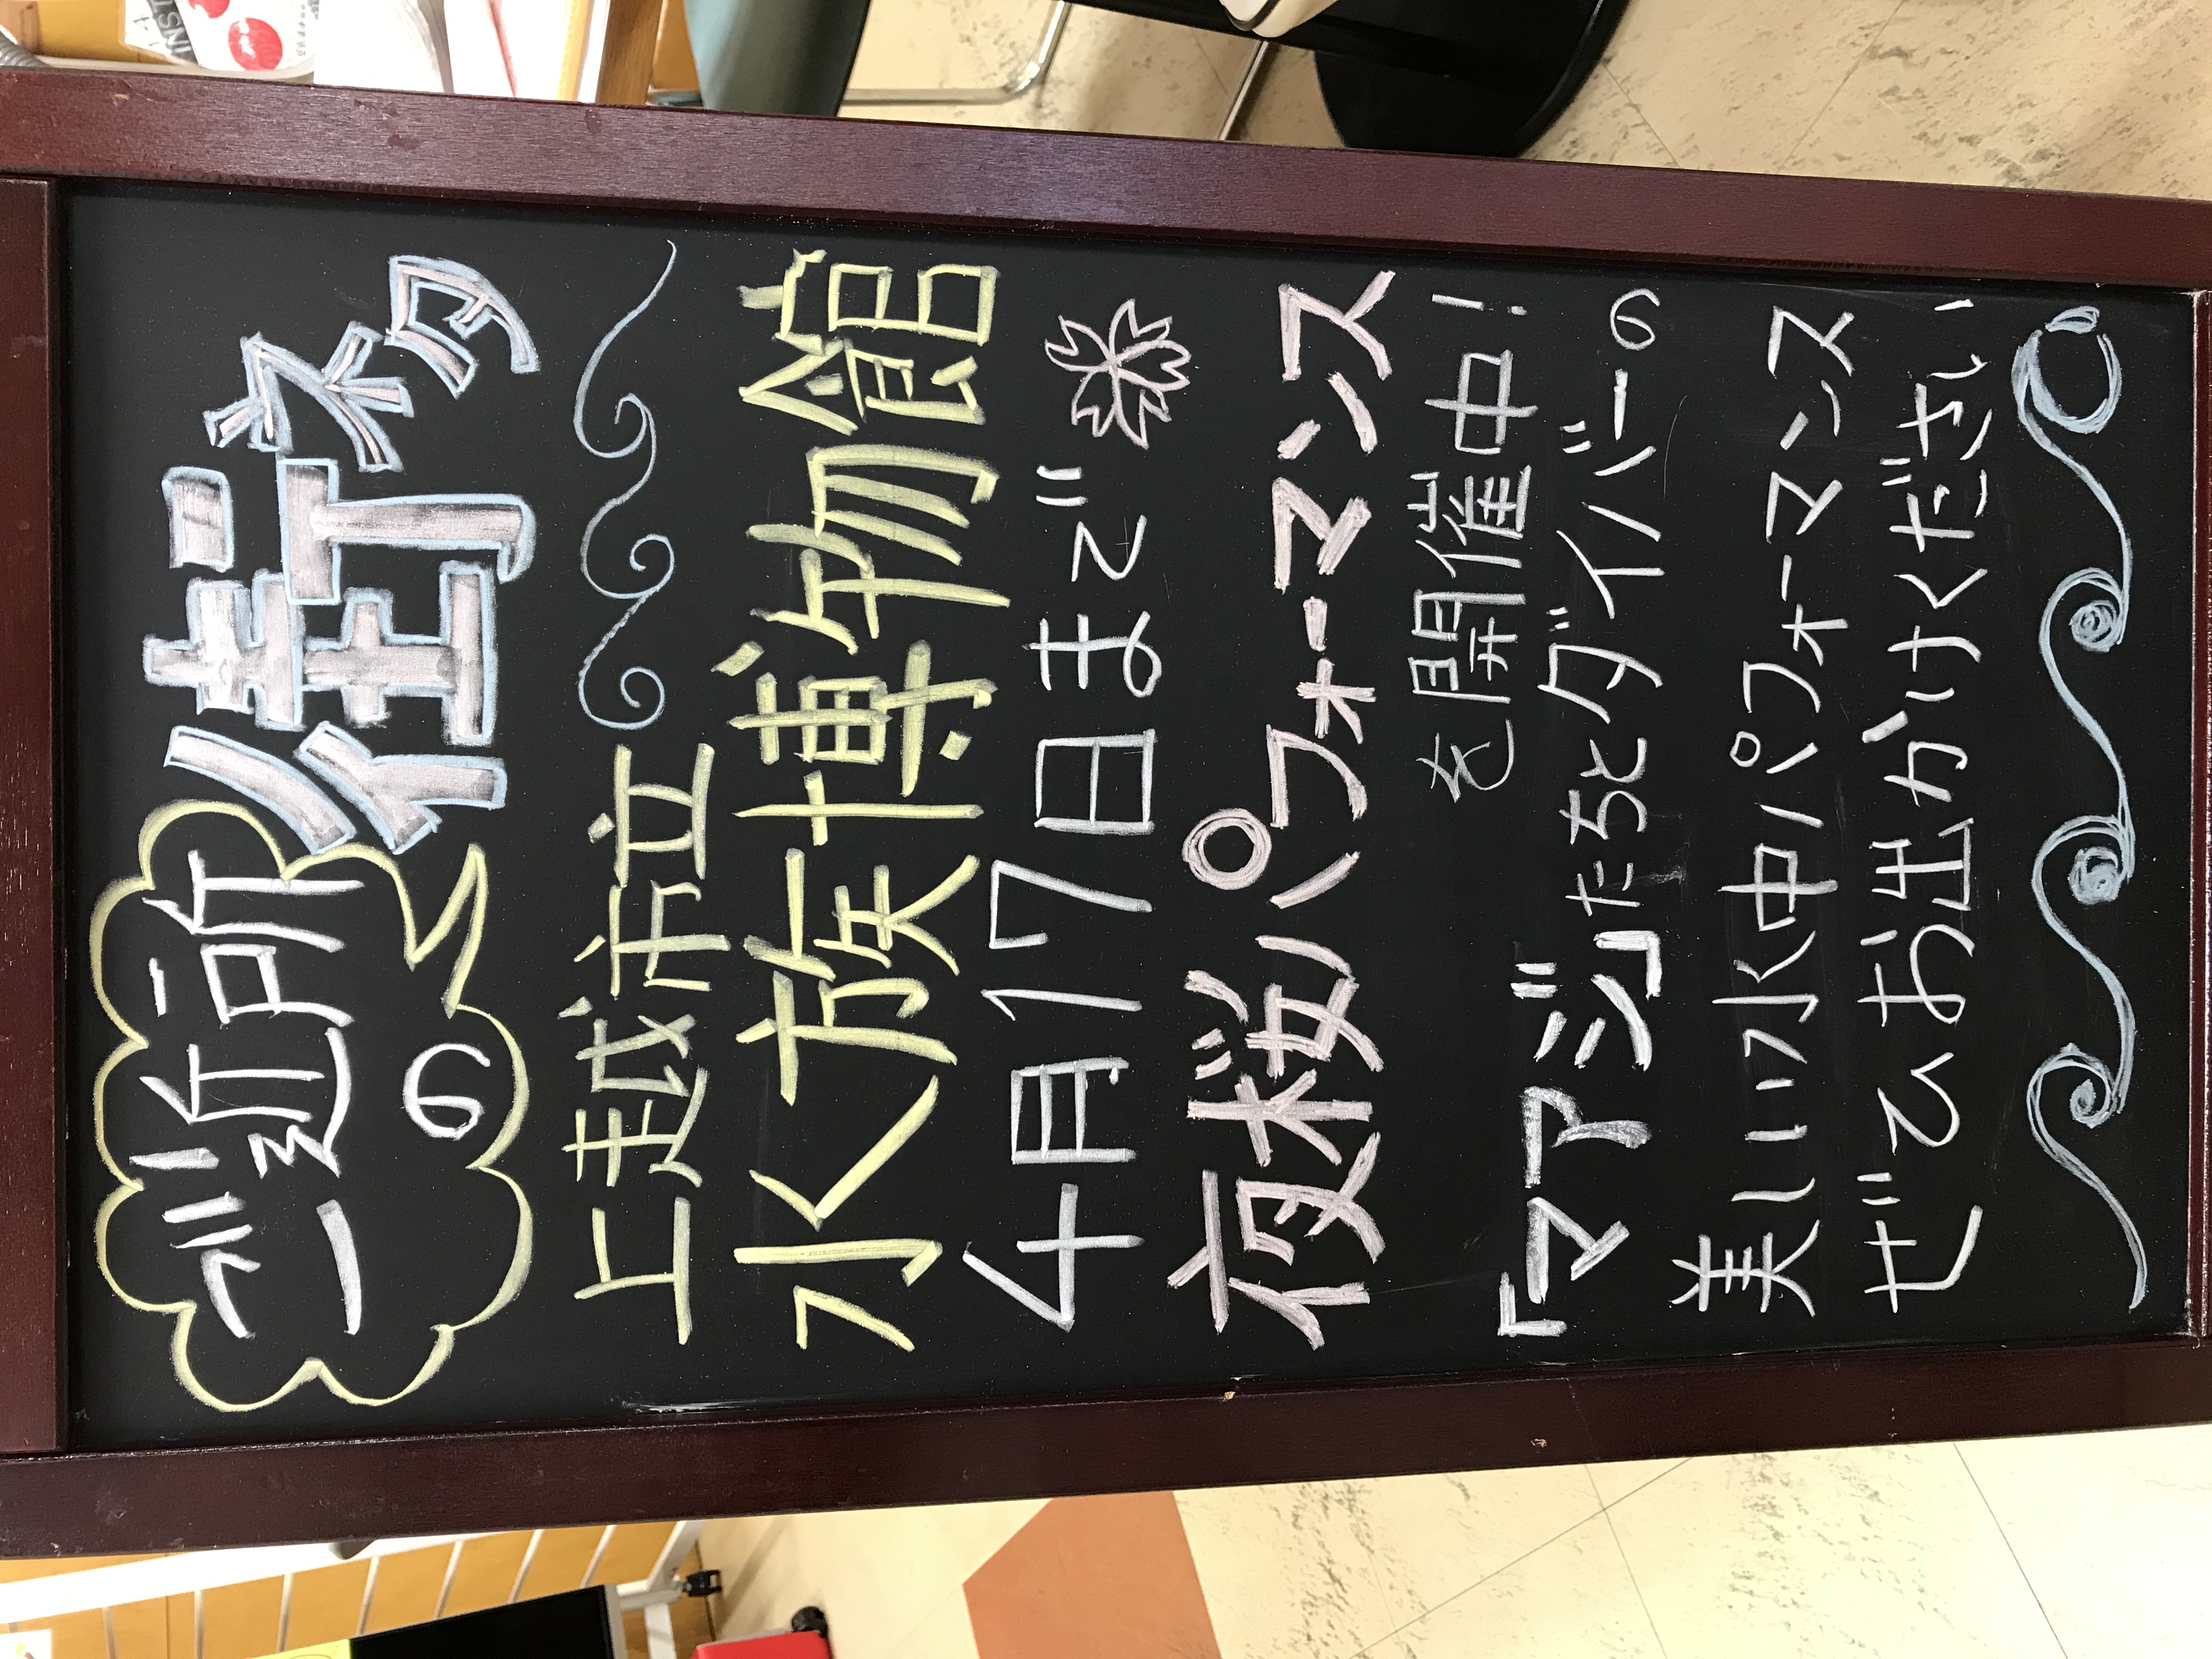 ご近所
の
街ネタ
上越市立
水族博物館
4月17日まで
夜桜パフォーマンス
を開催中！
「マアジ」たちとダイバーの
美しい水中パフォーマンス
ぜひお出かけください